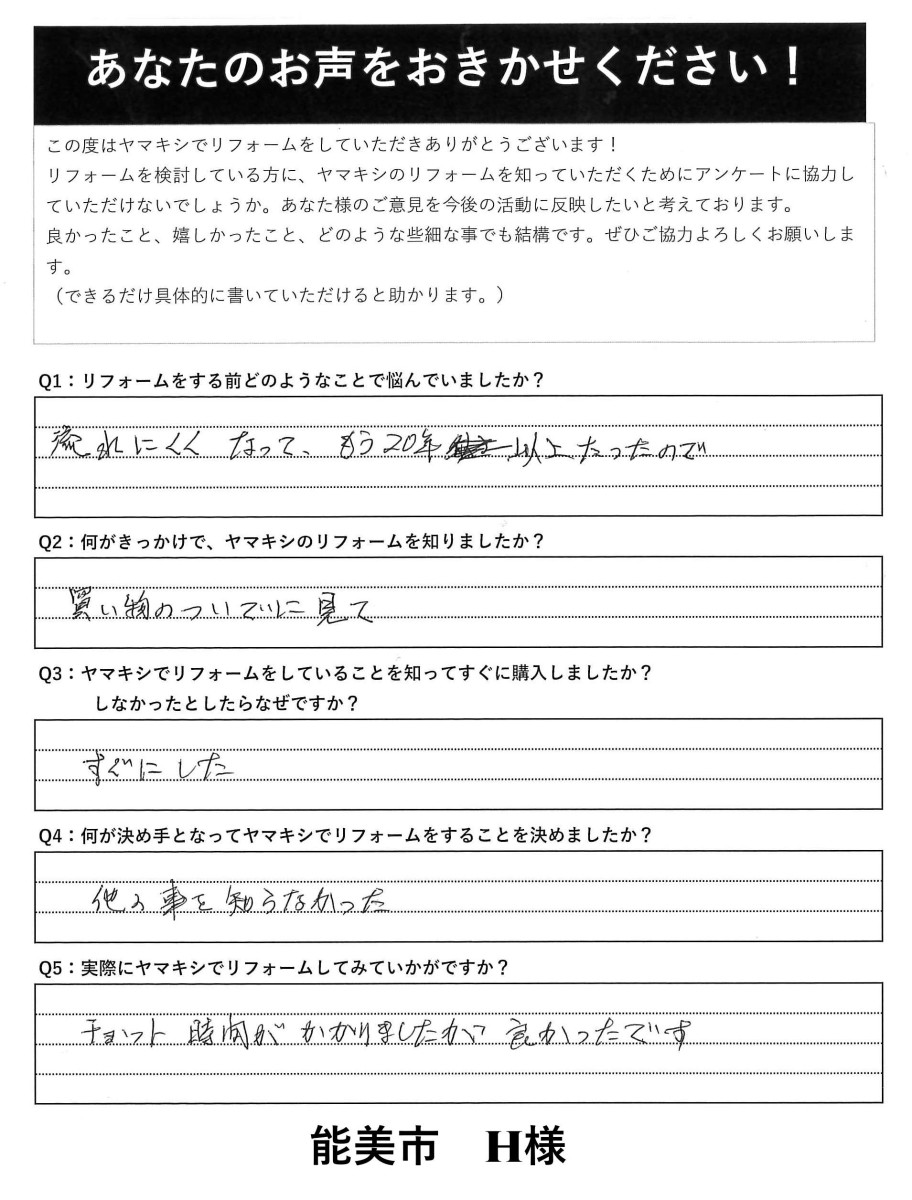 あなたのお声をおきかせください！
この度はヤマキシでリフォームをしていただきありがとうございます！
リフォームを検討している方に、ヤマキシのリフォームを知っていただくためにアンケートに協力し
ていただけないでしょうか。あなた様のご意見を今後の活動に反映したいと考えております。
良かったこと、嬉しかったこと、どのような些細な事でも結構です。ぜひご協力よろしくお願いしま
す。
（できるだけ具体的に書いていただけると助かります。）
Q1：リフォームをする前どのようなことで悩んでいましたか？
流れにくく なって、もう20年以上たったので
Q2：何がきっかけで、ヤマキシのリフォームを知りましたか？
買い物のついでに見て
Q3：ヤマキシでリフォームをしていることを知ってすぐに購入しましたか？
しなかったとしたらなぜですか？
すぐにした
Q4：何が決め手となってヤマキシでリフォームをすることを決めましたか？
他の事を知らなかった
Q5：実際にヤマキシでリフォームしてみていかがですか？
チョット 時間が かかりましたが 良かったです
能美市　H様